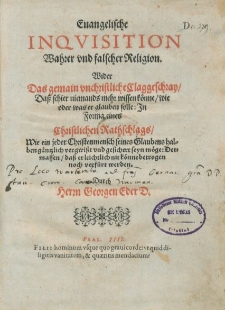 Euangelische
INQVISITION
Wahrer vnd falscher Religion.
Wider
Das gemain vnchristliche Claggeschray/
Daß schier niemands mehr wissen könne/ wie
oder was er glauben solle: In
Forma aines
Christlichen Rathschlags/
Wie ein jeder Christenmensch seines Glaubens hal-
ben gäntzlich vergwißt vnd gesichert seyn möge: Der-
massen/ daß er leichtlich nit könne betrogen
noch verfürt werden.
Pro Loco
Durch
Herrn Georgen Eder D.
PSAL. IIII.
FILII hominum vsque quo graui corde: vt quid di-
ligitis vanitatem, & quæritis mendacium?